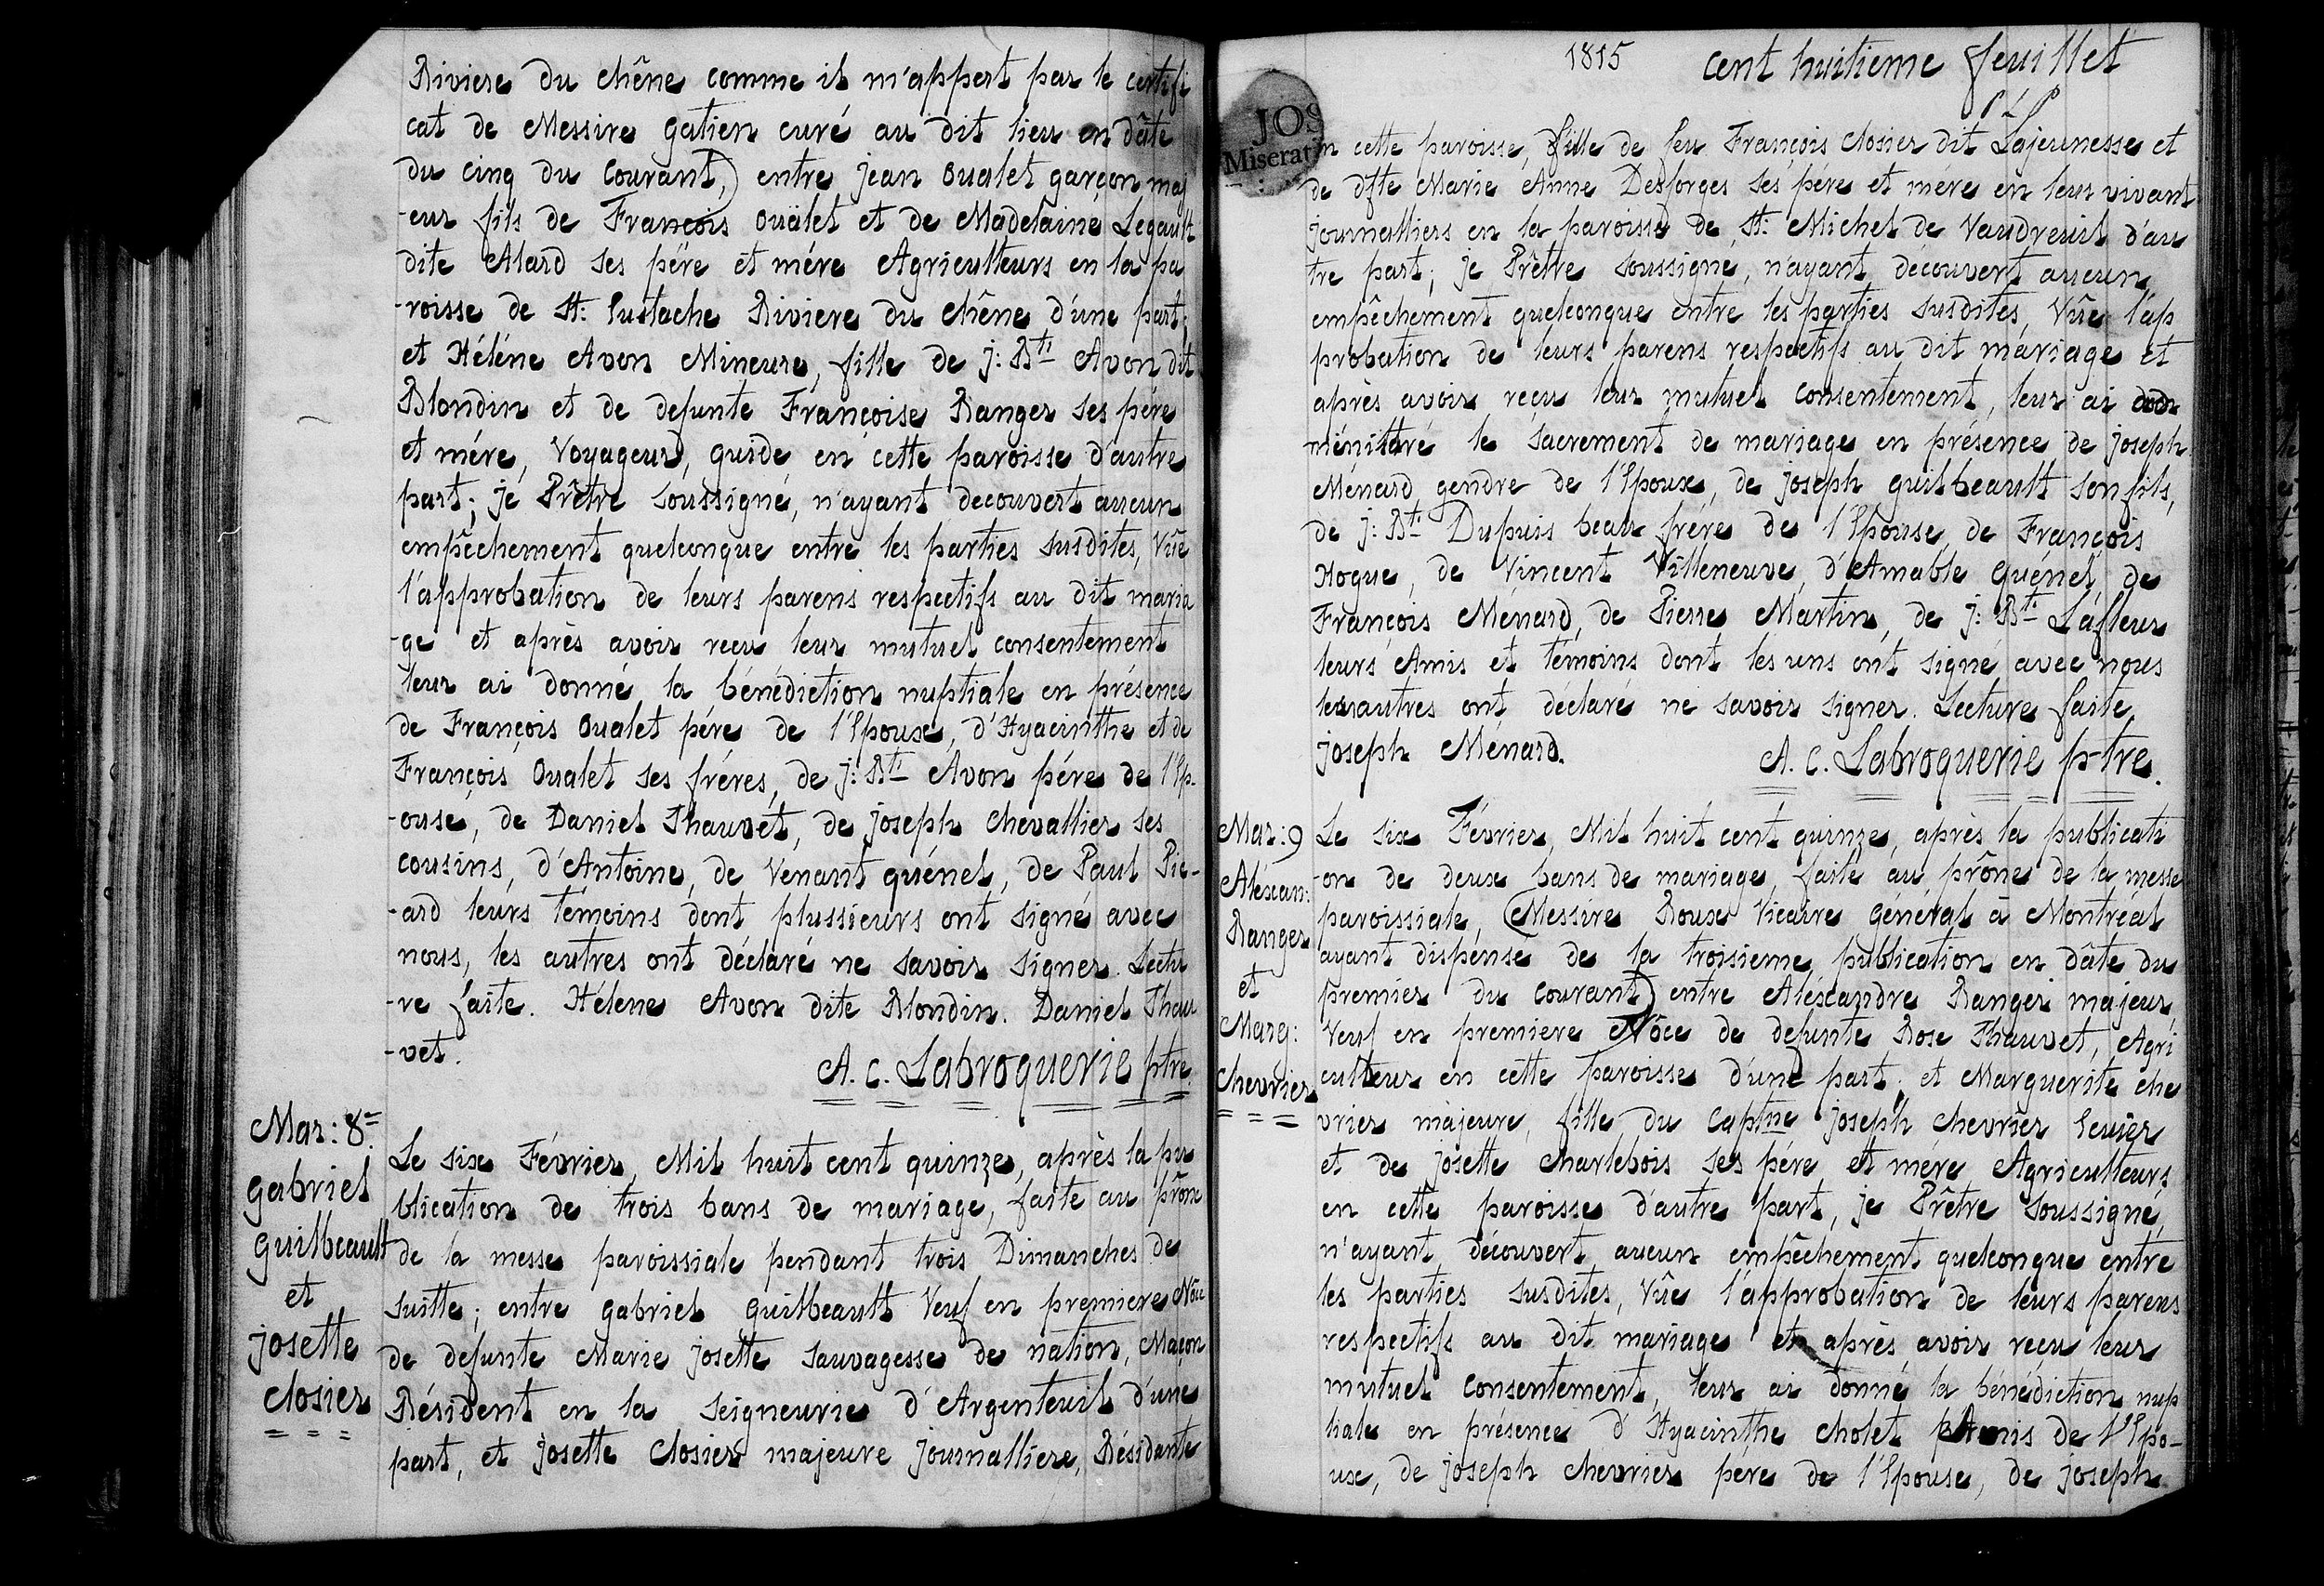 Riviere du chêne comme il m'appert par le certifi
cat de Messire gatien curé au dit lieu en dâte
du cinq du Courant,) entre jean Oualet garçon maj
-eur fils de François ouälet et de Madelaine Legault
dite Alard ses pére et mére Agriculteurs en la pa
-roisse de St: Eustache Riviere du Chêne d'une part;
et Héléne Avon Mineure, fille de j: Bti Avon dit
Blondin et de defunte Françoise Ranger ses pére
et mére, Voyageur, guide en cette paroisse d'autre
part; je Prêtre soussigné, n'ayant decouvert aucun
empêchement quelconque entre les parties susdites, Vûe
l'approbation de leurs parens respectifs au dit maria
-ge et après avoir reçu leur mutuel consentement
leur ai donné la bénédiction nuptiale en présence
de François Oualet pére de l'Epoux, d'Hyacinthe et de
François Oualet ses fréres, de j: Bti Avon pére de l'Ep-
-ouse, de Daniel Thauvet, de joseph chevallier ses
cousins, d'Antoine, de Venant quénel, de Paul Pic-
-ard leurs témoins dont plussieurs ont signé avec
nous, les autres ont déclaré ne savoir signer. Lectu
-re faite. Hélene Avon dite Blondin. Daniel Thau
-vet.
A. C. Labroquerie ptre.
Mar: 8=
gabriel
guilbeault
et
josette
closier
Le six Février, Mil huit cent quinze, après la pu
blication de trois bans de mariage, faite au prône
de la messe paroissiale pendant trois Dimanches de
suitte; entre gabriel guilbeault Veuf en premiere Nôce
de defunte Marie josette sauvagesse de nation, Maçon
Résident en la seigneurie d'Argenteuil d'une
part, et josette Closier majeure journalliere, Résidante
1815 cent huitieme feuillet
JOS
Miserat
en cette paroisse, fille de feu François closier dit Lajeunesse et
de dfte Marie Anne Desforges ses pere et mére en leur vivant
journalliers en la paroisse de St: Michel de Vaudreuil d'au
tre part; je Prêtre soussigné, n'ayant découvert aucun
empêchement quelconque entre les parties susdites, Vûe l'ap
probation de leurs parens respectifs au dit mariage et
après avoir reçu leur mutuel consentement, leur ai
ménistré le sacrement de mariage en présence de joseph
Ménard gendre de l'Epoux, de joseph guilbeault son fils,
de j: Bti Dupuis beau frére de l'Epouse, de François
Hogue, de Vincent Villeneuve, d'Amable quénel, de
François Ménard, de Pierre Martin, de j: Bti Lafleur
leurs Amis et témoins dont les uns ont signé avec nous
les autres ont déclaré ne savoir signer. Lecture faite,
joseph Ménard. A. C. Labroquerie p-tre.
Mar: 9
Aléxan:
Ranger
et
Marg:
chevrier
Le six Février, Mil huit cent quinze, après la publicati
-on de deux bans de mariage, faite au prône de la messe
paroissiale, (Messire Roux Vicaire général à Montréal
ayant dispensé de la troisieme publication en dâte du
premier du courant) entre Aléxandre Ranger majeur,
Veuf en premiere Nôce de defunte Rose Thauvet, Agri
culteur en cette paroisse d'une part; et Marguerite che
vrier majeure, fille du Captne joseph chevrier
et de josette Charlebois ses pére et mére Agriculteurs
en cette paroisse d'autre part, je Prêtre soussigné,
n'ayant découvert aucun empêchement quelconque entre
les parties susdites, Vûe l'approbation de leurs parens
respectifs au dit mariage et après avoir reçu leur
mutuel consentement, leur ai donné la bénédiction nup
tiale en présence d'Hyacinthe cholet Amis de l'Epo-
ux, de joseph chevrier pére de l'Epouse, de joseph